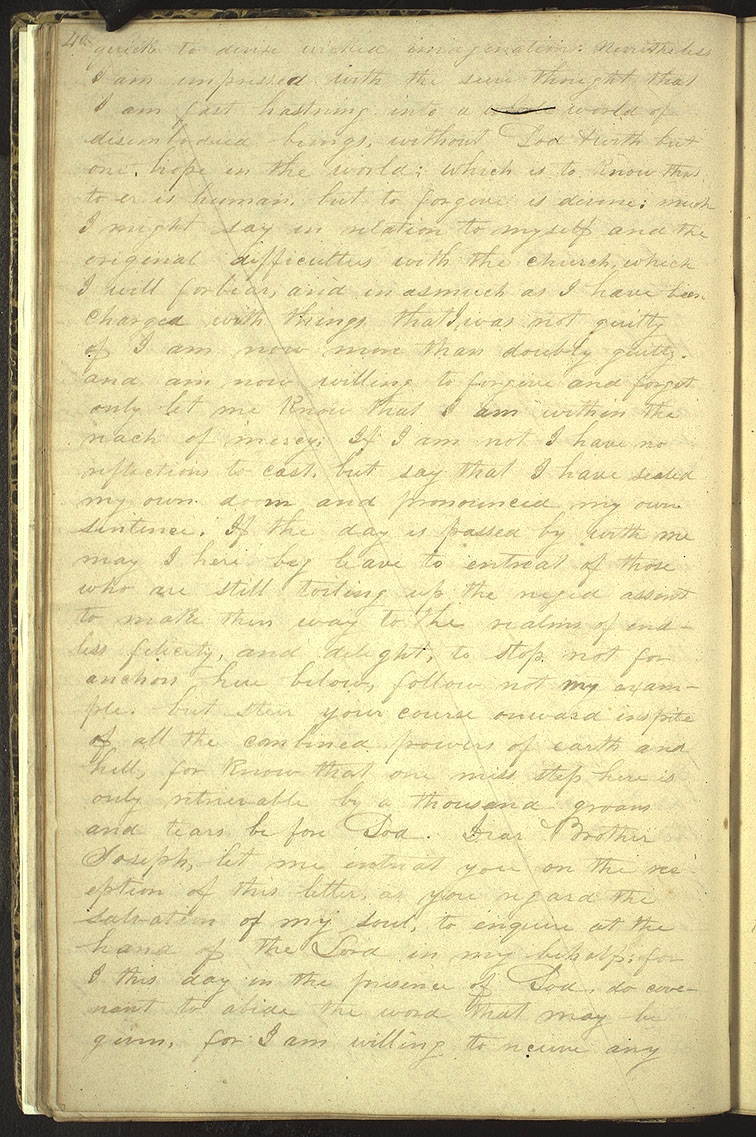 40
quick to devise wicked imagenations: Nevertheless
I am impressed with the sure thought that
I am fast hastning into a world of
disembodied beings, without God & with but
one, hope in the world; which is to know that
to er is human, but to forgive is devine: much
I might say in relation to myself and the
original difficulties with the church, which
I will forbear, and inasmuch as I have been
charged with things that I was not guilty
of I am now more than doubly guilty.
and am now willing to forgive and forget
only let me know that I am within the
reach of mercy; If I am not I have no
reflections to cast, but say that I have sealed
my own doom and pronounced my own
sentence. If the day is passed by with me
may I here beg leave to entreat of those
who are still toiling up the ruged assent
to make their way to the realms of end-
less felicity, and delight, to stop not for
anchors here below, follow not my exam-
ple. but steer your course onward inspite
of all the combined powers of earth and
hell, for know that one miss step here is
only retrievable by a thousand groans
and tears before God. Dear Brother
Joseph, let me entreat you on the rec
eption of this letter, as you regard the
salvation of my soul, to enquire at the
hand of the Lord in my behalf; for
I this day in the presence of God, do cove-
nant to abide the word that may be
given, for I am willing to receive any